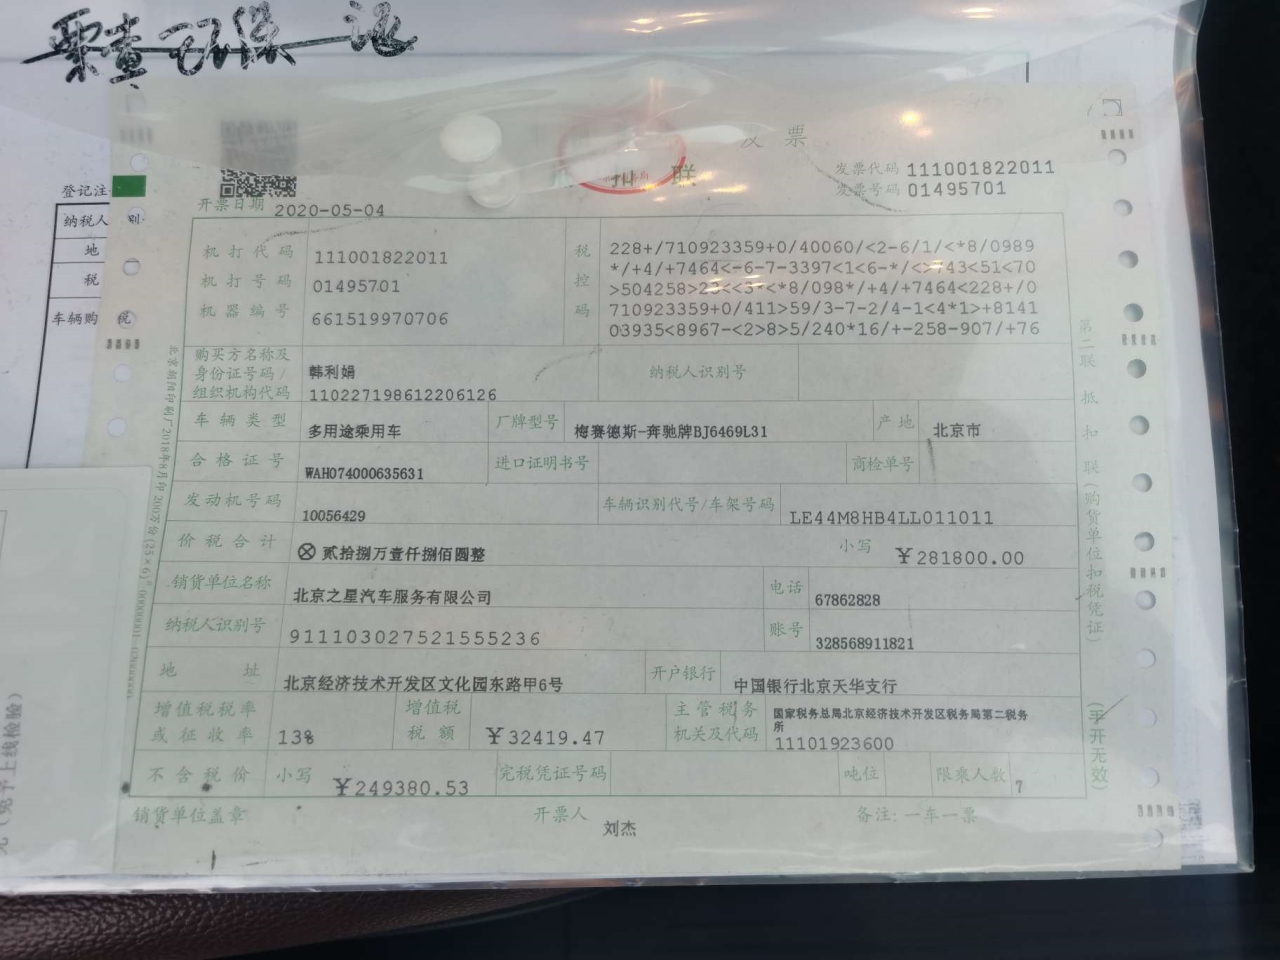 发票
扣 联
发票代码 111001822011
发票号码 01495701
开票日期 2020-05-04
登记注
纳税人 别
地
税
车辆购 税
机打代码 111001822011
机打号码 01495701
机器编号 661519970706
税控码
228+/710923359+0/40060/<2-6/1/<*8/0989
*/+4/+7464<-6-7-3397<1<6-*/<>743<51<70
>504258>23<<3*<*8/098*/+4/+7464<228+/0
710923359+0/411>59/3-7-2/4-1<4*1>+8141
03935<8967-<2>8>5/240*16/+-258-907/+76
购买方名称及
身份证号码/
组织机构代码
韩利娟
110227198612206126
纳税人识别号
车辆类型 多用途乘用车 厂牌型号 梅赛德斯-奔驰牌BJ6469L31 产地 北京市
合格证号 WAH074000635631 进口证明书号 商检单号
发动机号码 10056429 车辆识别代号/车架号码 LE44M8HB4LL011011
价税合计 ⊗贰拾捌万壹仟捌佰圆整 小写 ¥281800.00
销货单位名称 北京之星汽车服务有限公司 电话 67862828
纳税人识别号 911103027521555236 账号 328568911821
地址 北京经济技术开发区文化园东路甲6号 开户银行 中国银行北京天华支行
增值税税率
或征收率 13%
增值税
税额 ¥32419.47
主管税务
机关及代码
国家税务总局北京经济技术开发区税务局第二税务
所
11101923600
不含税价 小写 ¥249380.53 完税凭证号码 吨位 限乘人数 7
销货单位盖章 开票人 刘杰 备注:一车一票
第二联 抵扣联(购货单位扣税凭证)
(手开无效)